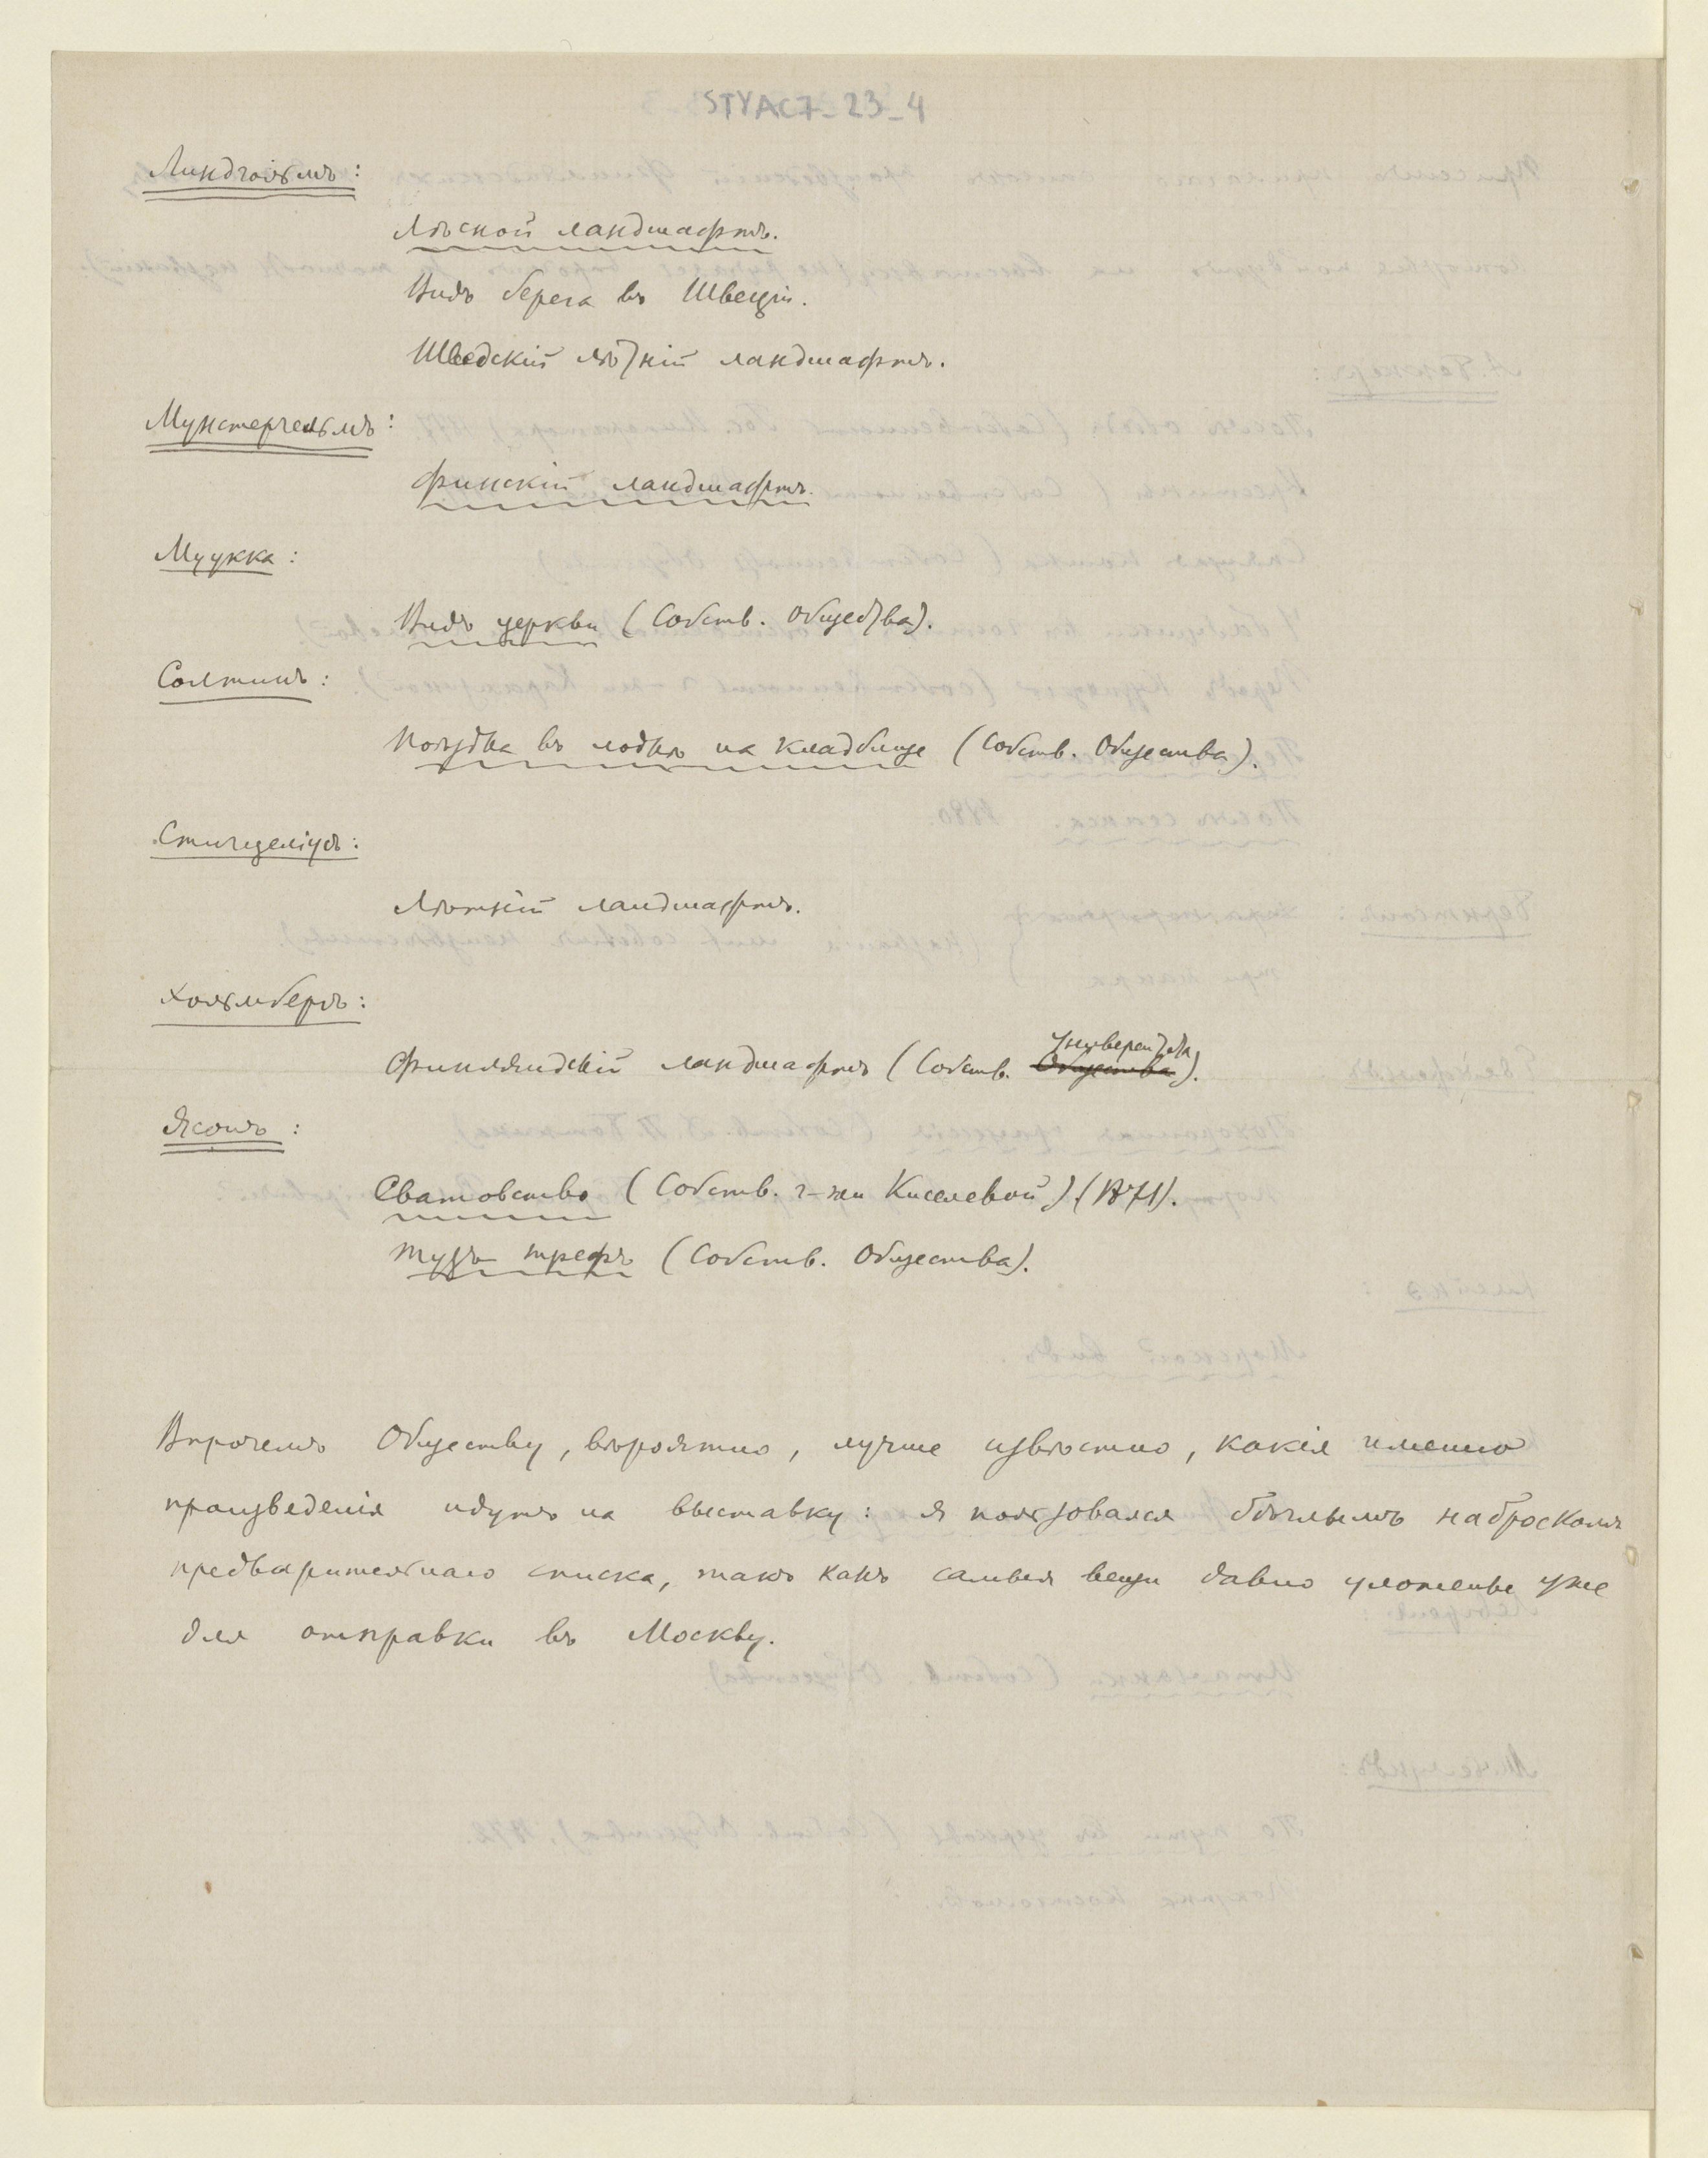 STYAC7_23_4
Линдгольмъ:
Лѣсной ландшафтъ.
Видъ берега въ Швеціи.
Шведскій лѣтній ландшафтъ.
Мунстергельмъ:
Финскій ландшафтъ.
Муукка:
Видъ церкви (Собств. Общества).
Солтинъ:
Поѣздка въ лодкѣ на кладбище (Собств. Общества).
Стигцеліусъ:
Лѣтній ландшафтъ.
Хольмбергъ:
Университета
Финляндскій ландшафтъ (Собств. Общества).
Ясонъ:
Сватовство (Собств. г-жи Киселевой) (1871).
Тузъ трефъ (Собств. Общества).
Впрочемъ Обществу, вѣроятно, лучше извѣстно, какія именно
произведенія идутъ на выставку: я пользовался бѣглымъ наброскомъ
предварительнаго списка, такъ какъ самыя вещи давно уложены уже
для отправки въ Москву.